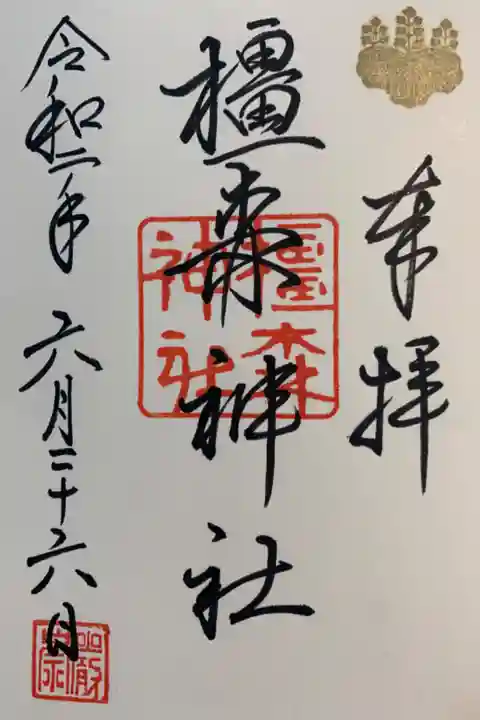 奉拝
橿森神社
橿森神社
令和二年 六月二十六日